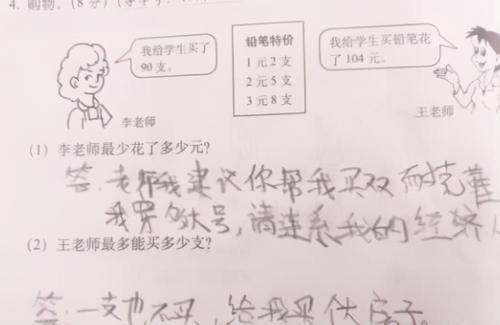 4. 购物。(8分)
我给学生买了
90支。
李老师
铅笔特价
1元2支
2元5支
3元8支
我给学生买铅笔花
了104元。
王老师
(1) 李老师最少花了多少元?
答:老师我建议你帮我买双
我穿 大号,请连系我的经济人
(2) 王老师最多能买多少支?
答:一支也不买,给我买 房子